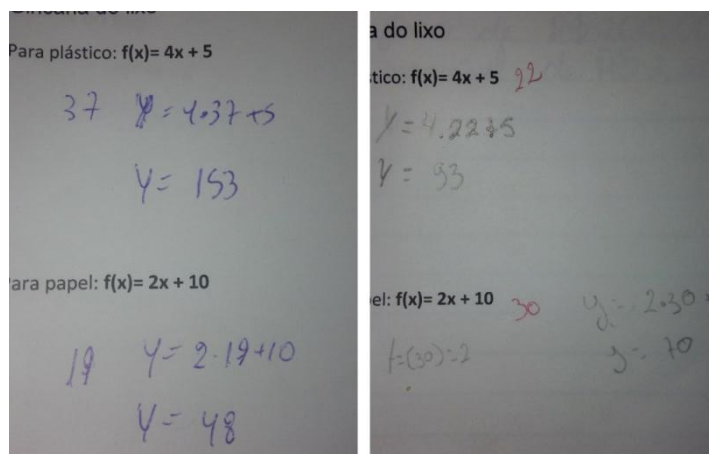 Para plástico: f(x)= 4x + 5
37 y = 4.37+5
y = 153
ara papel: f(x)= 2x + 10
19 y = 2.19+10
y = 48
a do lixo
tico: f(x)= 4x + 5 22
y = 4.22+5
y = 93
el: f(x)= 2x + 10 30
y = 2.30
f=(30)=2 y = 70